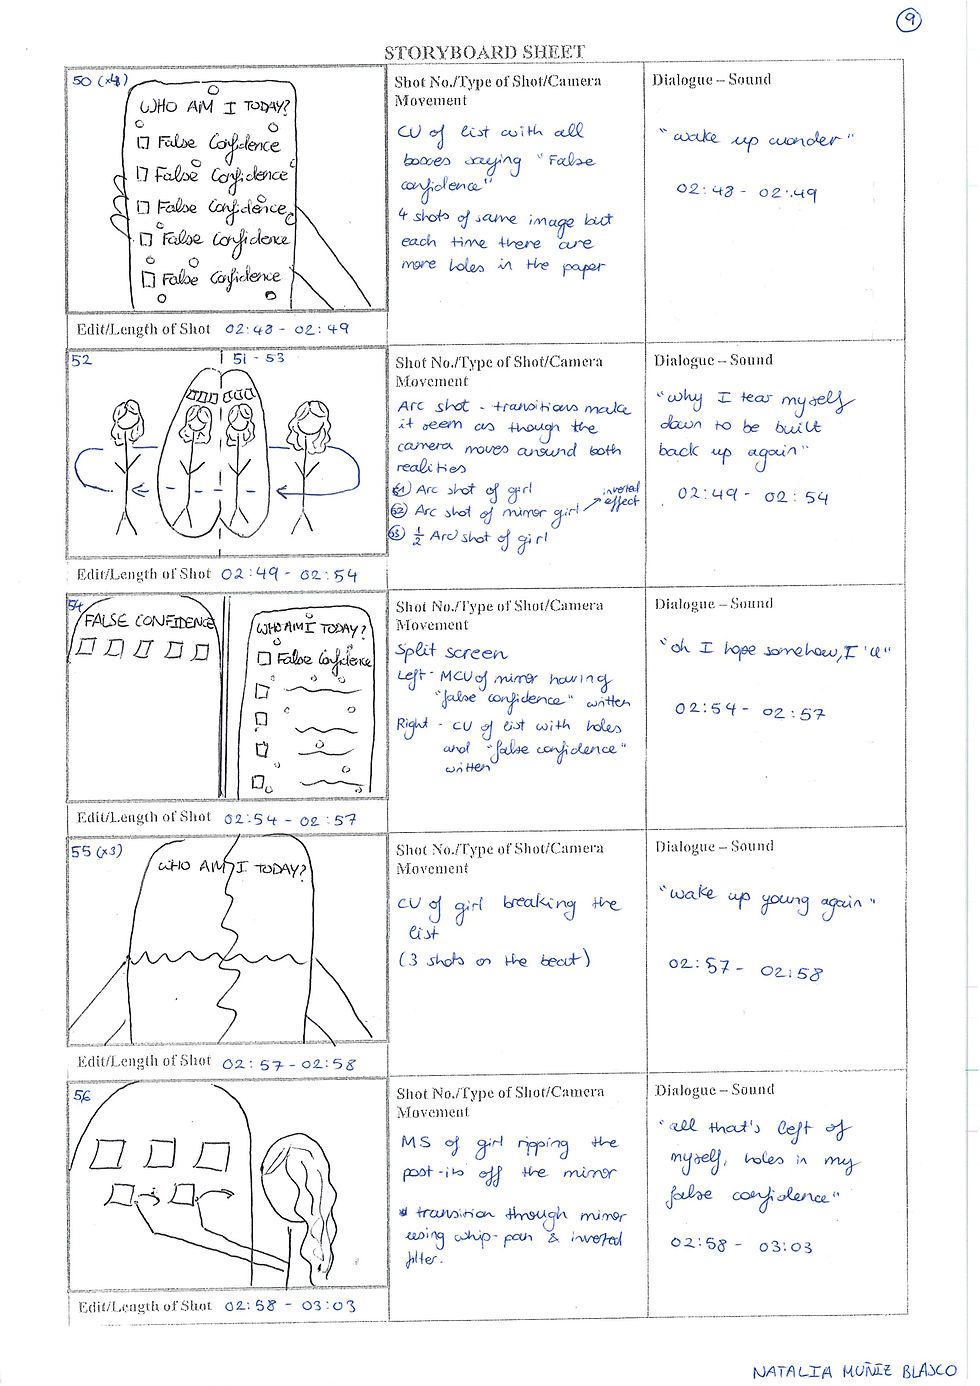 9
STORYBOARD SHEET
50 (x4)
WHO AM I TODAY?
False Confidence
False Confidence
False Confidence
False Confidence
False Confidence
Edit/Length of Shot 02:43 - 02:49
Shot No./Type of Shot/Camera
Movement
CU of list with all
boxes saying "False
confidence"
4 shots of same image but
each time there are
more holes in the paper
Dialogue – Sound
"wake up wonder"
02:43 - 02:49
52
51 - 53
Edit/Length of Shot 02:49 - 02:54
Shot No./Type of Shot/Camera
Movement
Arc shot - transitions make
it seem as though the
camera moves around both
realities
51) Arc shot of girl
52) Arc shot of mirror girl → inverted
effect
53) 1/2 Arc shot of girl
Dialogue – Sound
"why I tear myself
down to be built
back up again"
02:49 - 02:54
54
FALSE CONFIDENCE
WHO AM I TODAY?
False Confidence
Edit/Length of Shot 02:54 - 02:57
Shot No./Type of Shot/Camera
Movement
Split screen
Left - MCU of mirror having
"false confidence" written
Right - CU of list with holes
and "false confidence"
written
Dialogue – Sound
"oh I hope somehow, I'll"
02:54 - 02:57
55 (x3)
WHO AM I TODAY?
Edit/Length of Shot 02:57 - 02:58
Shot No./Type of Shot/Camera
Movement
CU of girl breaking the
list
(3 shots on the beat)
Dialogue – Sound
"wake up young again"
02:57 - 02:58
56
Edit/Length of Shot 02:58 - 03:03
Shot No./Type of Shot/Camera
Movement
MS of girl ripping the
post-its off the mirror
* transition through mirror
using whip-pan & inverted
filter.
Dialogue – Sound
"all that's left of
myself, holes in my
false confidence"
02:58 - 03:03
NATALIA MUÑIZ BLASCO